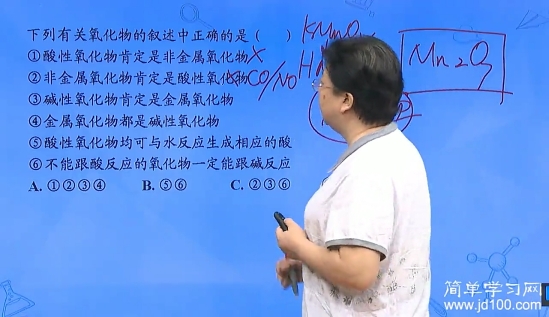 下列有关氧化物的叙述中正确的是（ ）
①酸性氧化物肯定是非金属氧化物 ×
②非金属氧化物肯定是酸性氧化物 CO/NO
③碱性氧化物肯定是金属氧化物
④金属氧化物都是碱性氧化物
⑤酸性氧化物均可与水反应生成相应的酸
⑥不能跟酸反应的氧化物一定能跟碱反应
A. ①②③④ B. ⑤⑥ C. ②③⑥
KMnO
Mn₂O₇
简单学习网
www.jd100.com